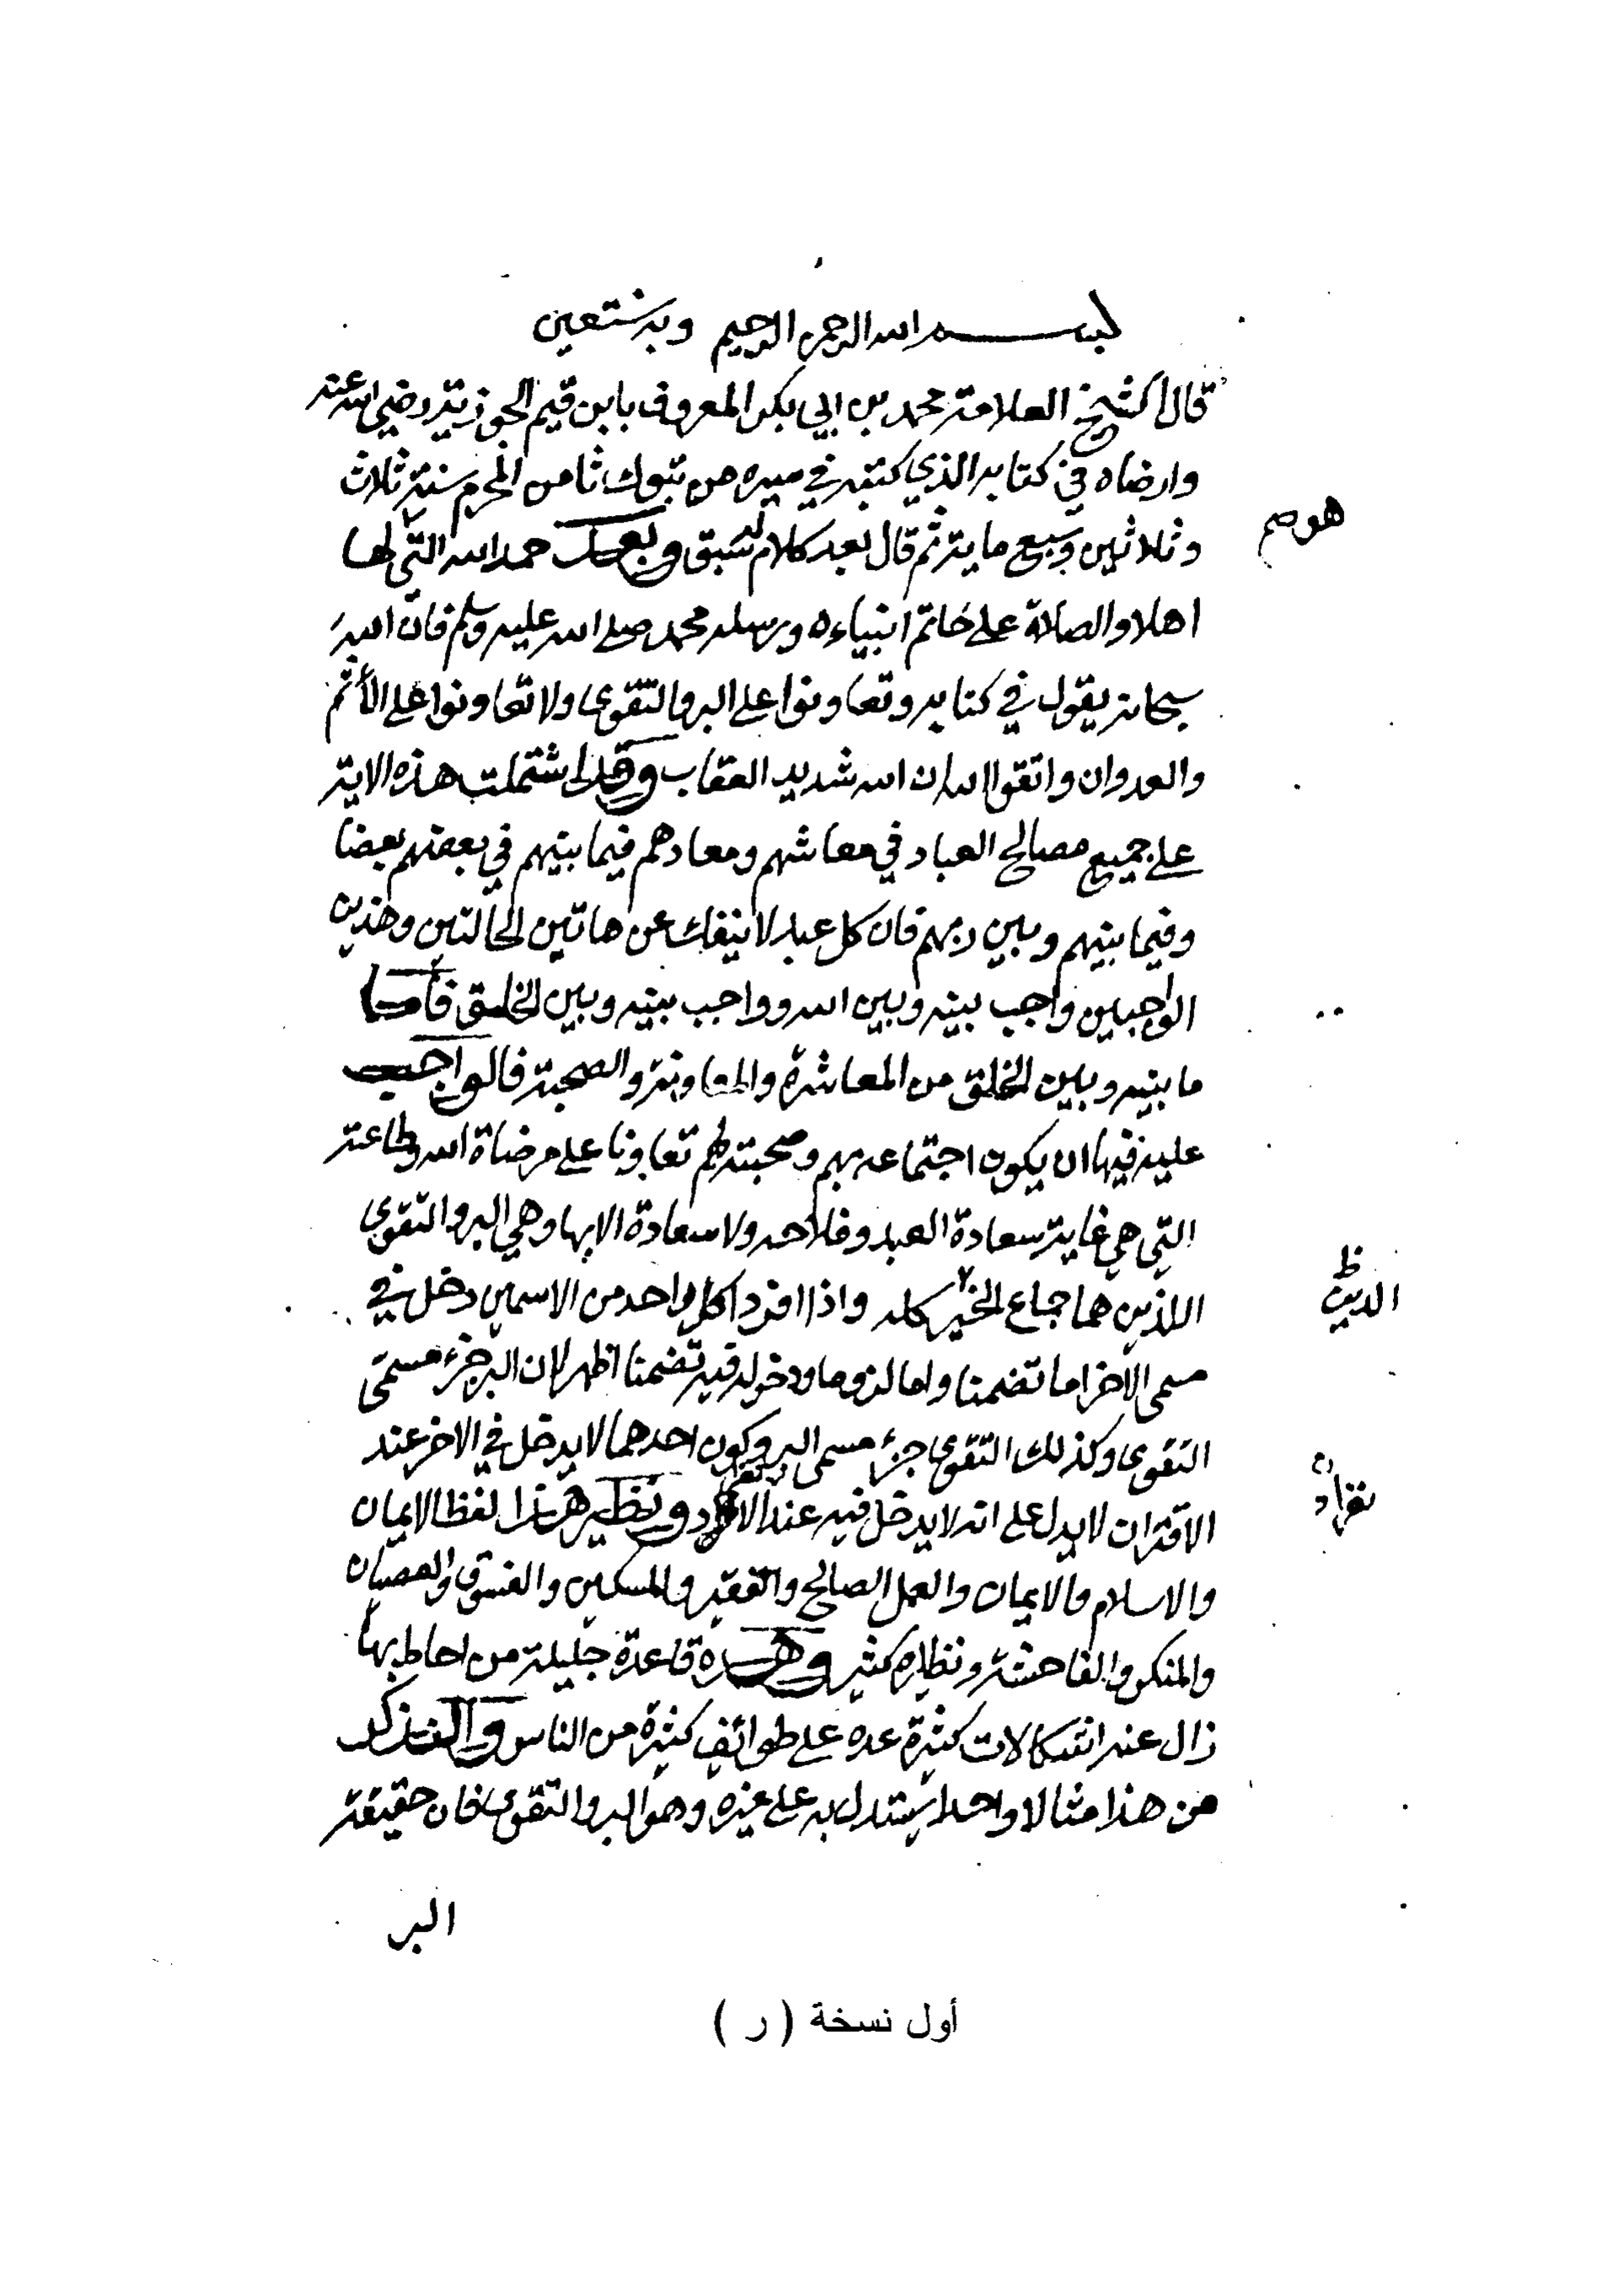 بسم الله الرحمن الرحيم وبه نستعين
قال الشيخ العلامة محمد بن ابي بكر المعروف بابن قيم الجوزية رضي الله عنه
وارضاه في كتابه الذي كتبه في سيره من تبوك ثامن المحرم سنة ثلاث
وثلاثين وسبع ماية ثم قال بعد كلام له سبق وبعد حمد الله التي لها
اهلا والصلاة على خاتم انبياءه ورسله محمد صلى الله عليه وسلم فان الله
سبحانه يقول في كتابه وتعاونوا على البر والتقوى ولا تعاونوا على الأثم
والعدوان واتقوا الله ان الله شديد العقاب وقد اشتملت هذه الاية
على جميع مصالح العباد في معاشهم ومعادهم فيما بينهم في بعضهم بعضا
وفيما بينهم وبين ربهم فان كل عبد لا ينفك عن هاتين الحالتين وهذين
الواجبين واجب بينه وبين الله وواجب بينه وبين الخلق فأما
ما بينه وبين الخلق من المعاشرة والمعاونة والصحبة فالواجب
عليه فيها ان يكون اجتماعه بهم وصحبته لهم تعاونا على مرضاة الله وطاعته
التي هي غاية سعادة العبد وفلاحه ولا سعادة الا بها وهي البر والتقوى
اللذين هما جماع الخير كله واذا افرد كل واحد من الاسمين دخل في
الدين
مسمى الآخر اما تضمنا واما لزوما ودخوله فيه تضمنا اظهر لان البر جزء مسمى
التقوى وكذلك التقوى جزء مسمى البر وكون احدهما لا يدخل في الاخر عند
الاقتران لا يدل على انه لا يدخل فيه عند الانفراد ونظير هذا لفظ الايمان
والاسلام والايمان والعمل الصالح والفقير والمسكين والفسوق والعصيان
والمنكر والفاحشة ونظايره كثير وهذه قاعدة جليلة من احاط بها
زال عنه اشكالات كثيرة عده على طوائف كثيرة من الناس ولنذكر
من هذا مثالا واحدا يستدل به على غيره وهو البر والتقوى فان حقيقة
البر
أول نسخة ( ر )